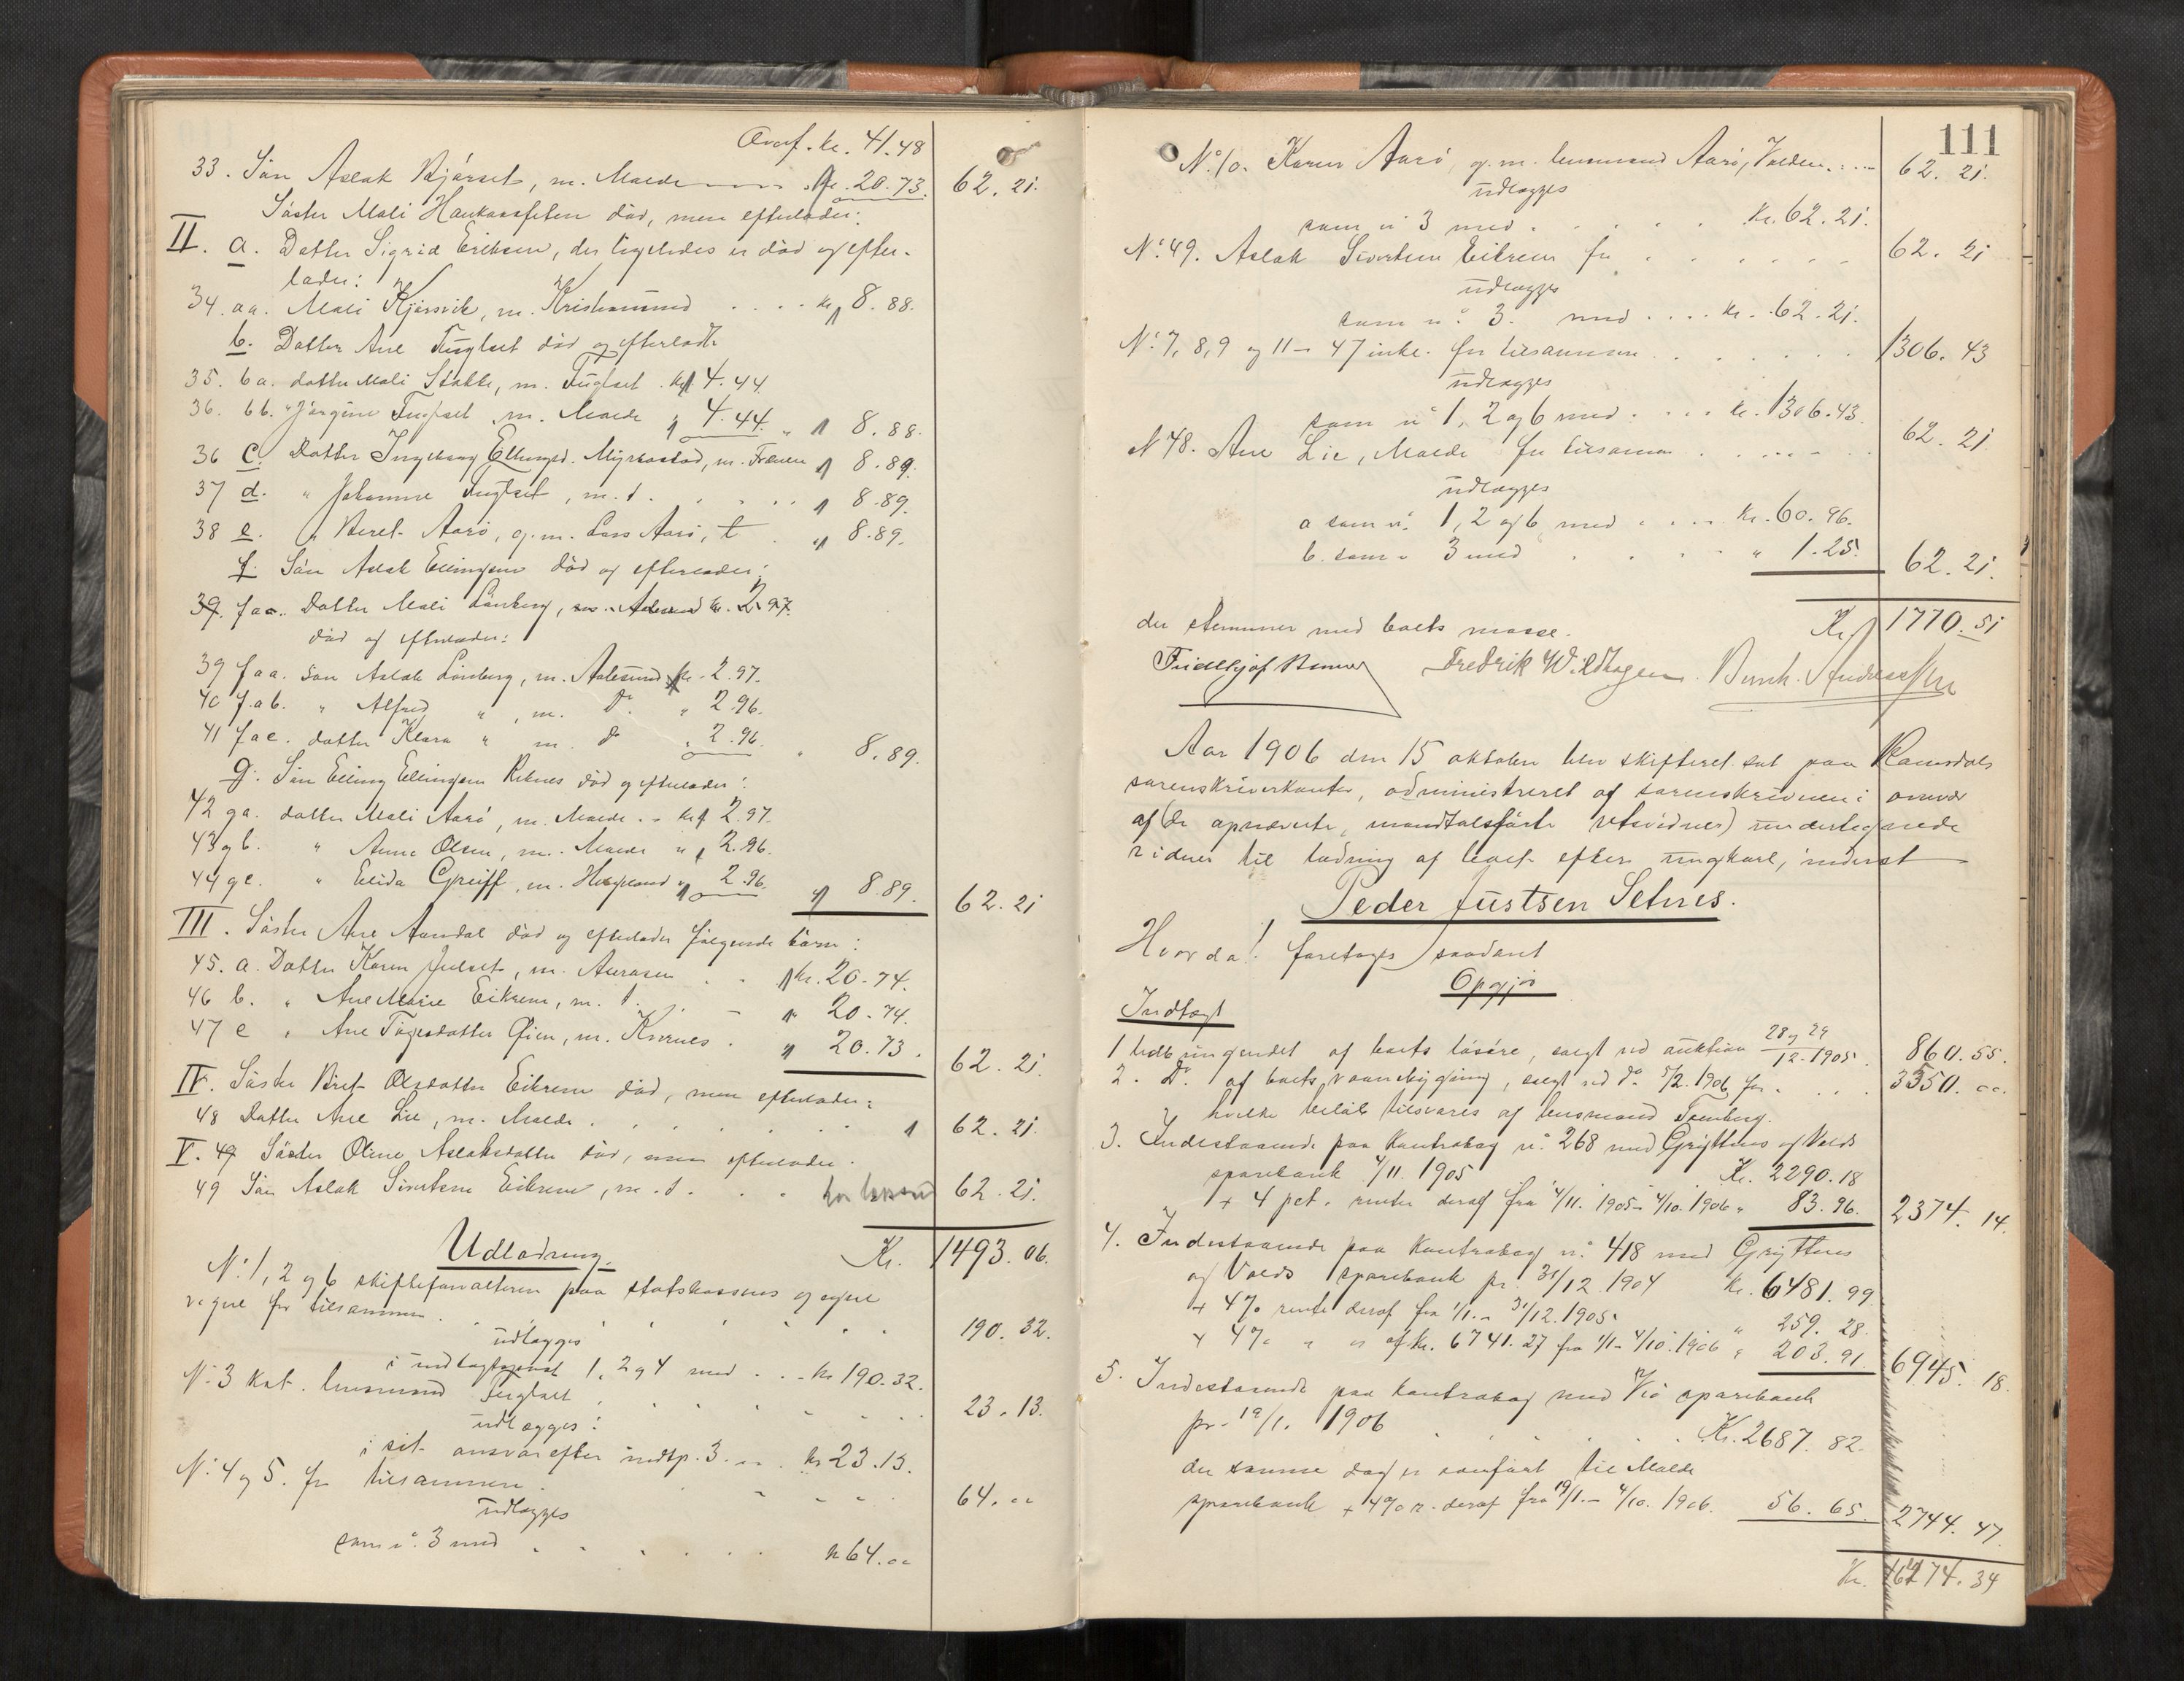 Overf. kr. 41.48
33. Sön Aslak Björset, m. Molde kr. 20.73. 62.21.
II. Söster Mali Haukaasfeten död, men efterlader:
a. Datter Sigrid Eriksen, der ligeledes er död og efter-
lader:
34. aa. Mali Kjörsvik, m. Kristiansund . . . kr. 8.88.
b. Datter Ane Fuglset död og efterladt
35. ba. datter Mali Stokke, m. Fuglset kr. 4.44
36. bb. " Jörgine Fuglset m. Molde " 4.44. " 8.88.
36 c. Datter Ingeborg Ellingsd. Myrbostad, m. Frænen " 8.89.
37 d. " Johanne Fuglset, m. d. . . . " 8.89.
38 e. " Beret Aarö, g. m. Lars Aarö, t . " 8.89.
f. Sön Aslak Ellingsen död og efterlader:
39. faa. Datter Mali Lönberg, m. Aalesund kr. 2.97.
död og efterlader:
39 faa. Sön Aslak Lönberg, m. Aalesund kr. 2.97.
40 f.ab. " Alfred " , m. Do. " 2.96.
41 fac. datter Klara " m. do " 2.96. " 8.89.
g. Sön Elling Ellingsen Reknes död og efterlader:
42 ga. datter Mali Aarö, m. Molde . . kr. 2.97.
43 gb. " Anne Olsen, m. Molde " 2.96.
44 gc. " Elida Greiff, m. " 2.96. " 8.89. 62.21
III. Söster Ane Aandal död og efterlader fölgende börn:
45. a. Datter Karen Julset, m. Aurasen . . kr. 20.74.
46 b. " Ane Marie Eikrem, m. d. . - " 20.74.
47 c " Ane Tögesdatter Öien, m. Kornes . " 20.73. 62.21.
IV. Söster Brit Olsdatter Eikrem död, men efterlader:
48 Datter Ane Lie, m. Molde . . . . . 62.21.
V. 49 Söster Oline Aslaksdatter död, men efterlader.
49 Sön Aslak Sivertsen Eikrem, m. d. . . . 62.21.
Kr. 1493.06.
Udlodning.
No. 1, 2 og 6 skifteforvalteren paa statskassens og egne
vegne for tilsammen . . . . . . . 190.32.
udlægges
i indtægtspost 1, 2 og 4 med . . . kr 190.32.
No. 3 kst. lensmand Fuglset . . . . . . 23.13.
udlægges:
i sit ansvar efter indtp. 3 . . . kr 23.13.
No. 4 og 5. for tilsammen . . . . . 64.00
udlægges
som no. 3 med . . . . . . kr 64.00
111
No. 10. Karen Aarö, g. m. lensmand Aarö, Volden . . . 62.21.
udlægges
som no 3 med . . . . . kr. 62.21.
No. 49. Aslak Sivertsen Eikrem for . . . . . . 62.21
udlægges
som no. 3. med . . . . kr. 62.21.
No. 7, 8, 9 og 11 - 47 inkl. for tilsammen . . . . . . 1306.43
udlægges
som no 1, 2 og 6 med . . . . kr. 1306.43.
No 48. Ane Lie, Molde for tilsammen . . . . . . 62.21
udlægges
a som no. 1, 2 og 6 med . . . . kr. 60.96.
b. som " 3 med . . . . " 1.25. 62.21.
der stemmer med boets masse. Kr. 1770.51
Fredrik Wildhagen. Bernh. Andreassen
Aar 1906 den 15 oktober blev skifteret sat paa Romsdals
sorenskriverkontor, administreret af sorenskriveren i overvær
af (de opnævnte, mandtalsförte retsvidner) undertegnede
vidner til lodning af boet efter ungkarl, inderst
Peder Justsen Setnes.
Hvorda! foretoges saadant
Opgjör
Indtægt
1 Indkomne af boets lösöre, solgt ved auktion 28 og 29/12-1905. 860.55.
2. Do. af boets vaaningbygning, solgt ved do. 5/2.1906 for . . . 3350.00.
hvilke belöb tilsvares af lensmand Tomberg.
3. Indestaaende paa kontrabog no. 268 med Gryttens og Volds
sparebank 4/11.1905 . . . kr. 2290.18
+ 4 pct. renter deraf fra 4/11.1905 - 4/10.1906 " 83.96. 2374.14.
4. Indestaaende paa kontrabog no. 418 med Gryttens
og Volds sparebank pr. 31/12 1904 kr. 6481.99
+ 4% rente deraf fra 1/1. - 31/12.1905. " 259.28.
+ 4% " " af kr. 6741.27 fra 1/1 - 4/10.1906 " 203.91. 6945.18.
5. Indestaaende paa kontrabog med Veö sparebank
pr. 19/1. 1906 . . . . . . Kr. 2687.82.
der samme dag er overfört til Molde
sparebank + 4% r. deraf fra 19/1. - 4/10.1906. 56.65. 2744.47.
Kr. 16274.34